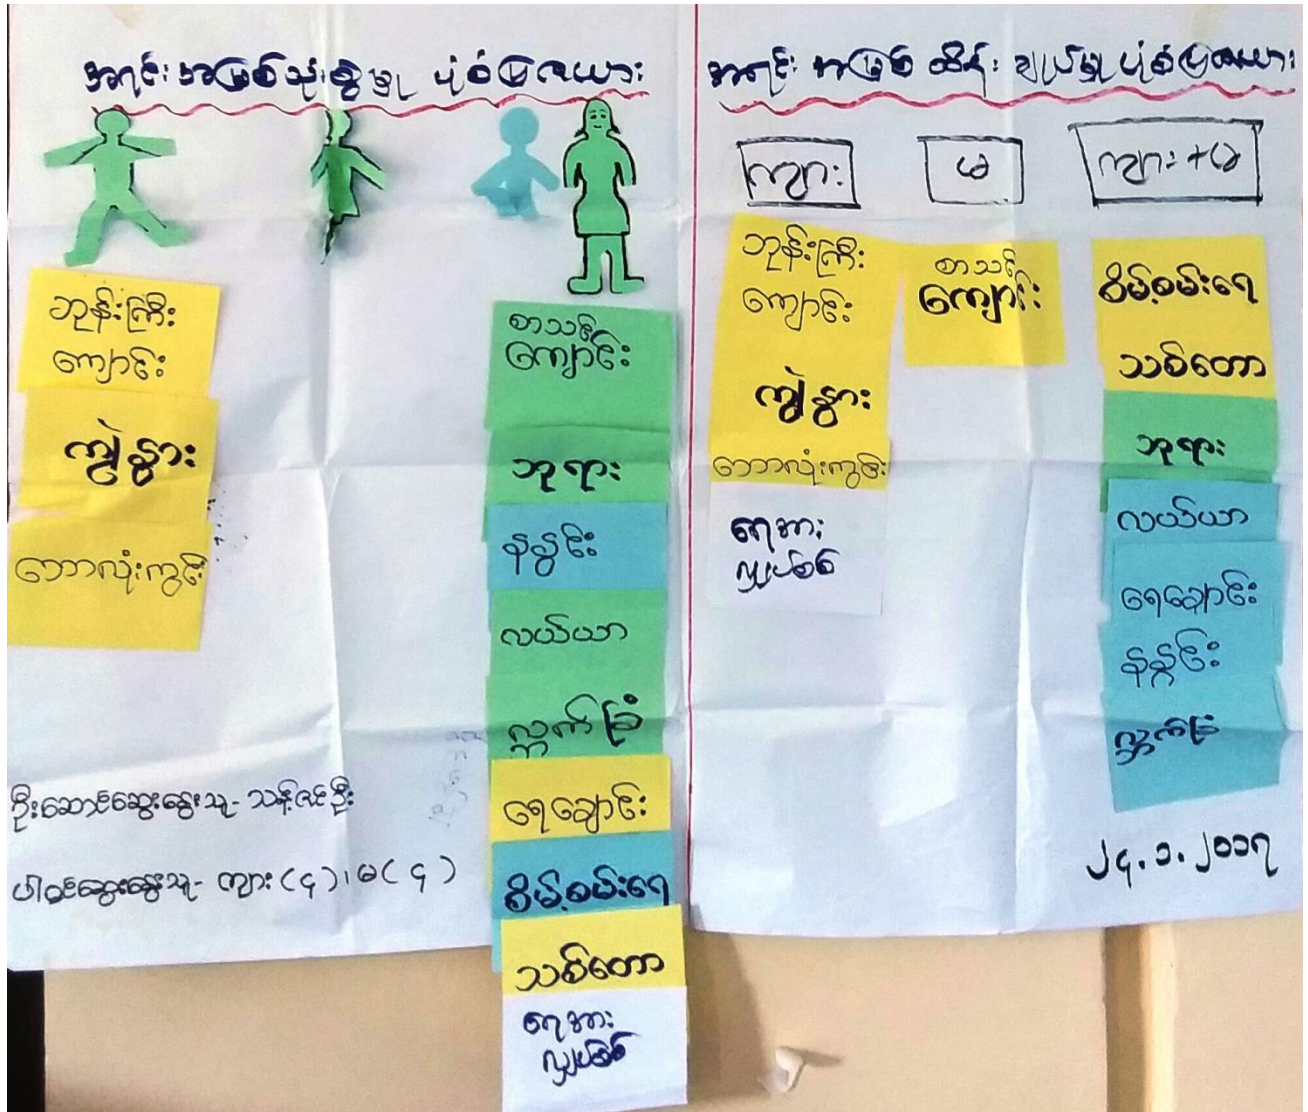 အရင်းအမြစ်သုံးစွဲမှု ပုံစံပြဇယား
ဘုန်းကြီး
ကျောင်း
ကျွဲနွား
ဘောလုံးကွင်း
စာသင်
ကျောင်း
ဘုရား
နနွင်း
လယ်ယာ
လ္ဘက်ခြံ
ရေချောင်း
စိမ့်စမ်းရေ
သစ်တော
ရေအား
လျှပ်စစ်
ဦးဆောင်ဆွေးနွေးသူ- သန့်ဇင်ဦး
ပါဝင်ဆွေးနွေးသူ- ကျား(၄)၊ မ(၄)
အရင်းအမြစ် ထိန်းချုပ်မှုပုံစံပြဇယား
ကျား
မ
ကျား+မ
ဘုန်းကြီး
ကျောင်း
ကျွဲနွား
ဘောလုံးကွင်း
ရေအား
လျှပ်စစ်
စာသင်
ကျောင်း
စိမ့်စမ်းရေ
သစ်တော
ဘုရား
လယ်ယာ
ရေချောင်း
နနွင်း
လ္ဘက်ခြံ
၂၄.၁.၂၀၁၇